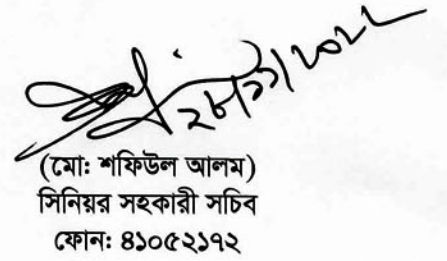 ২৮/১১/২০২২
(মো: শফিউল আলম)
সিনিয়র সহকারী সচিব
ফোন: ৪১০৫২১৭২